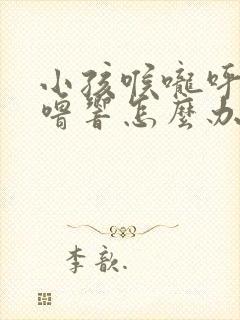 小孩喉嚨呼
嚕響怎麼办
李歆.